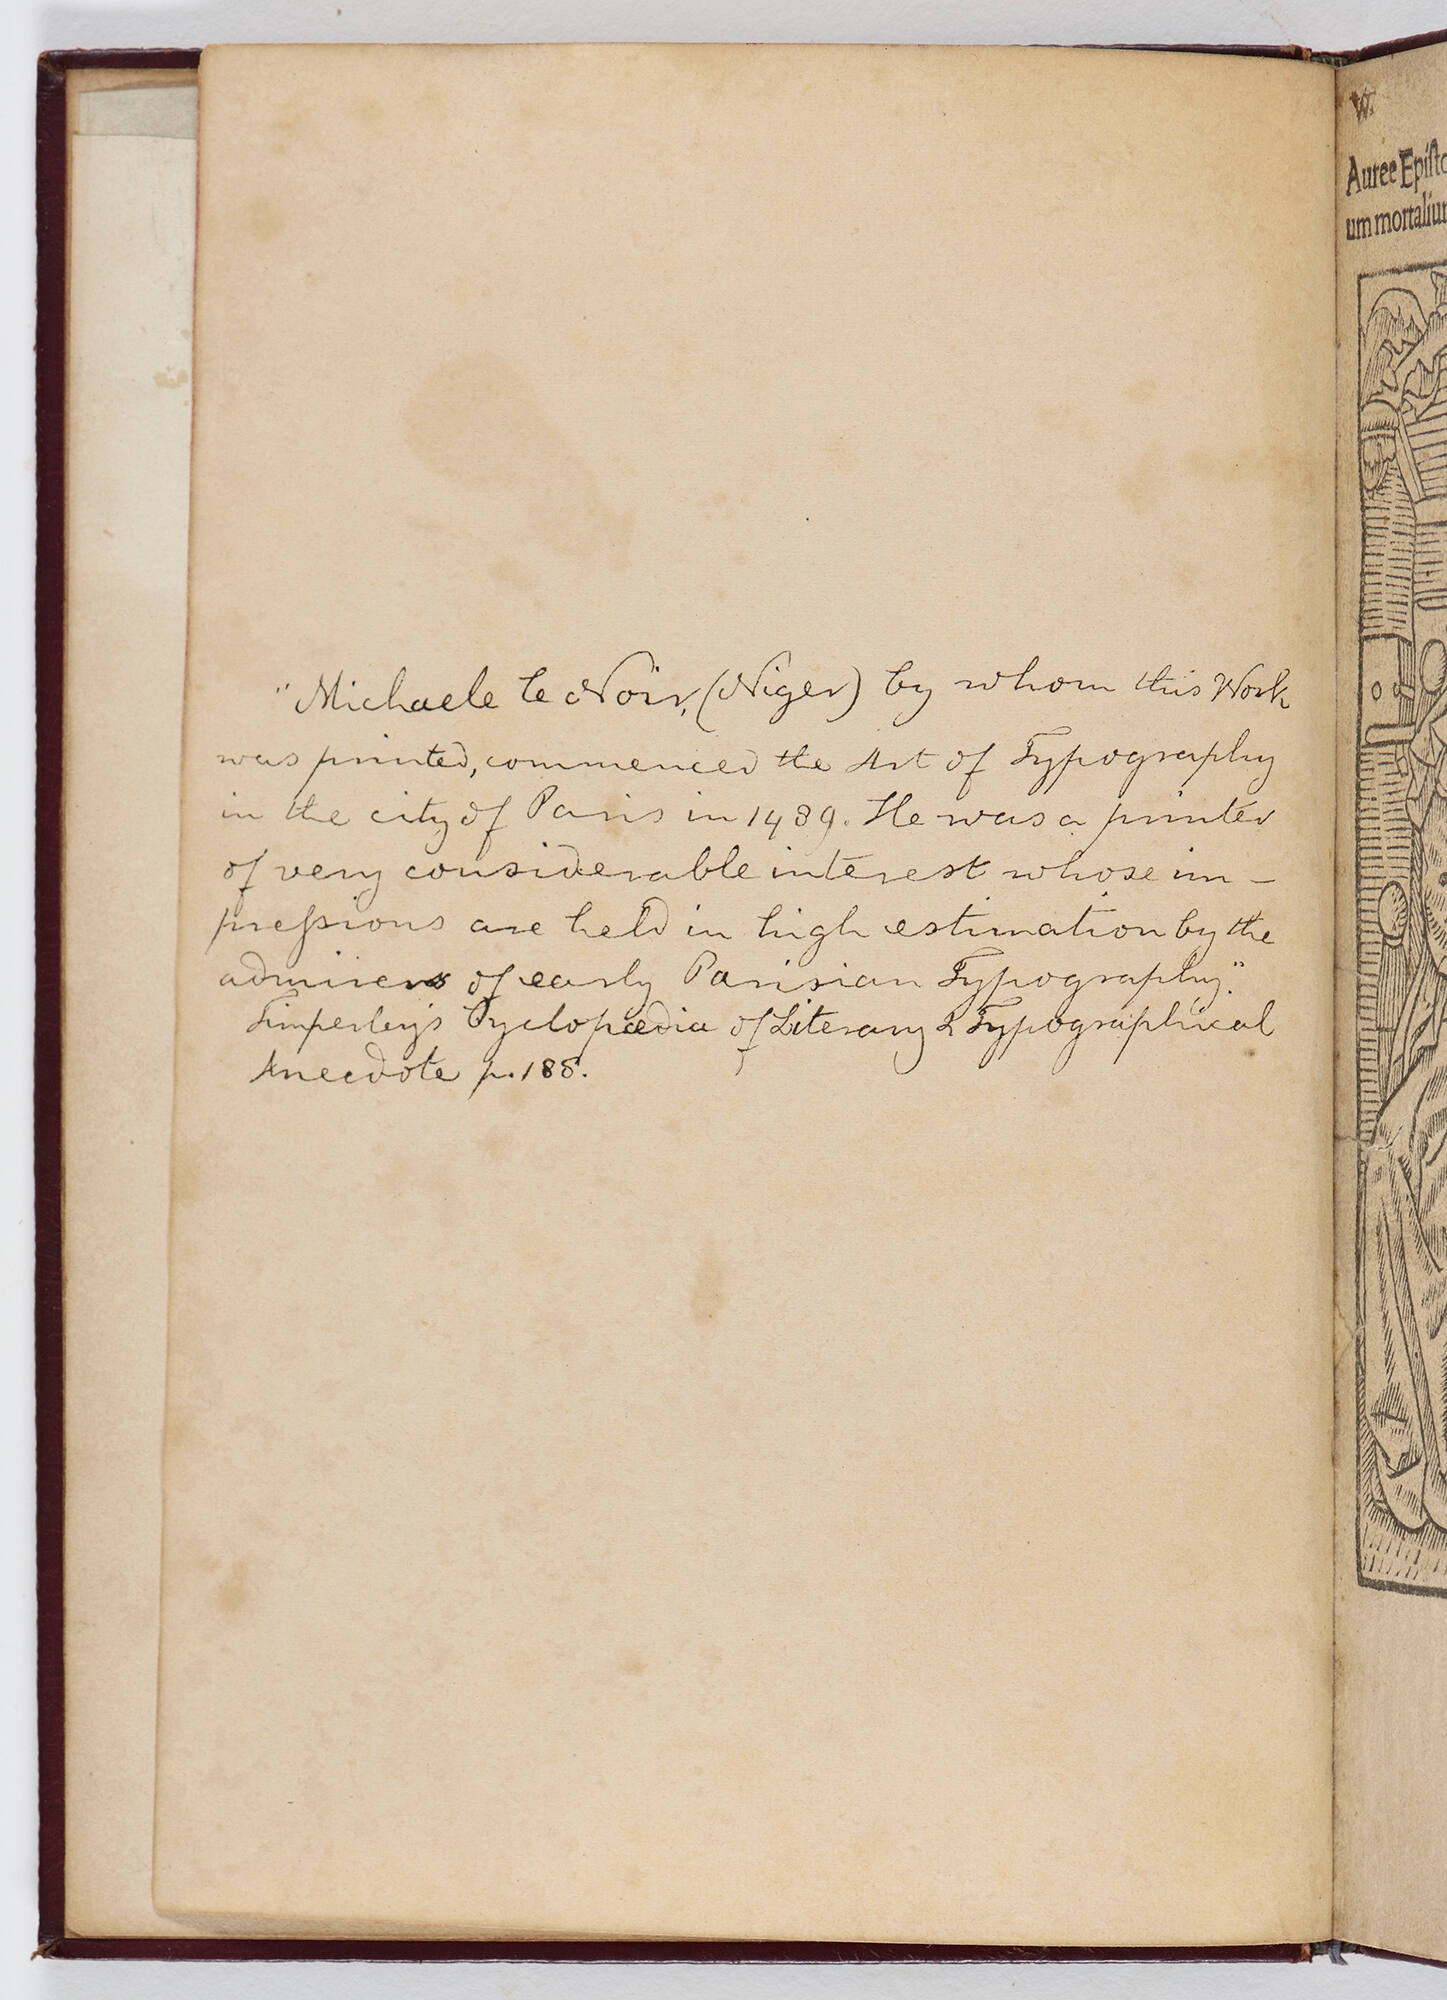 "Michaele le Noir, (Niger) by whom this Work
was printed, commenced the Art of Typography
in the city of Paris in 1489. He was a printer
of very considerable interest whose im-
preſsions are held in high estimation by the
admirers of early Parisian Typography."
Timperley's Cyclopædia of Literary & Typographical
Anecdote p. 188.
W.
Auree Epiſto
um mortaliu